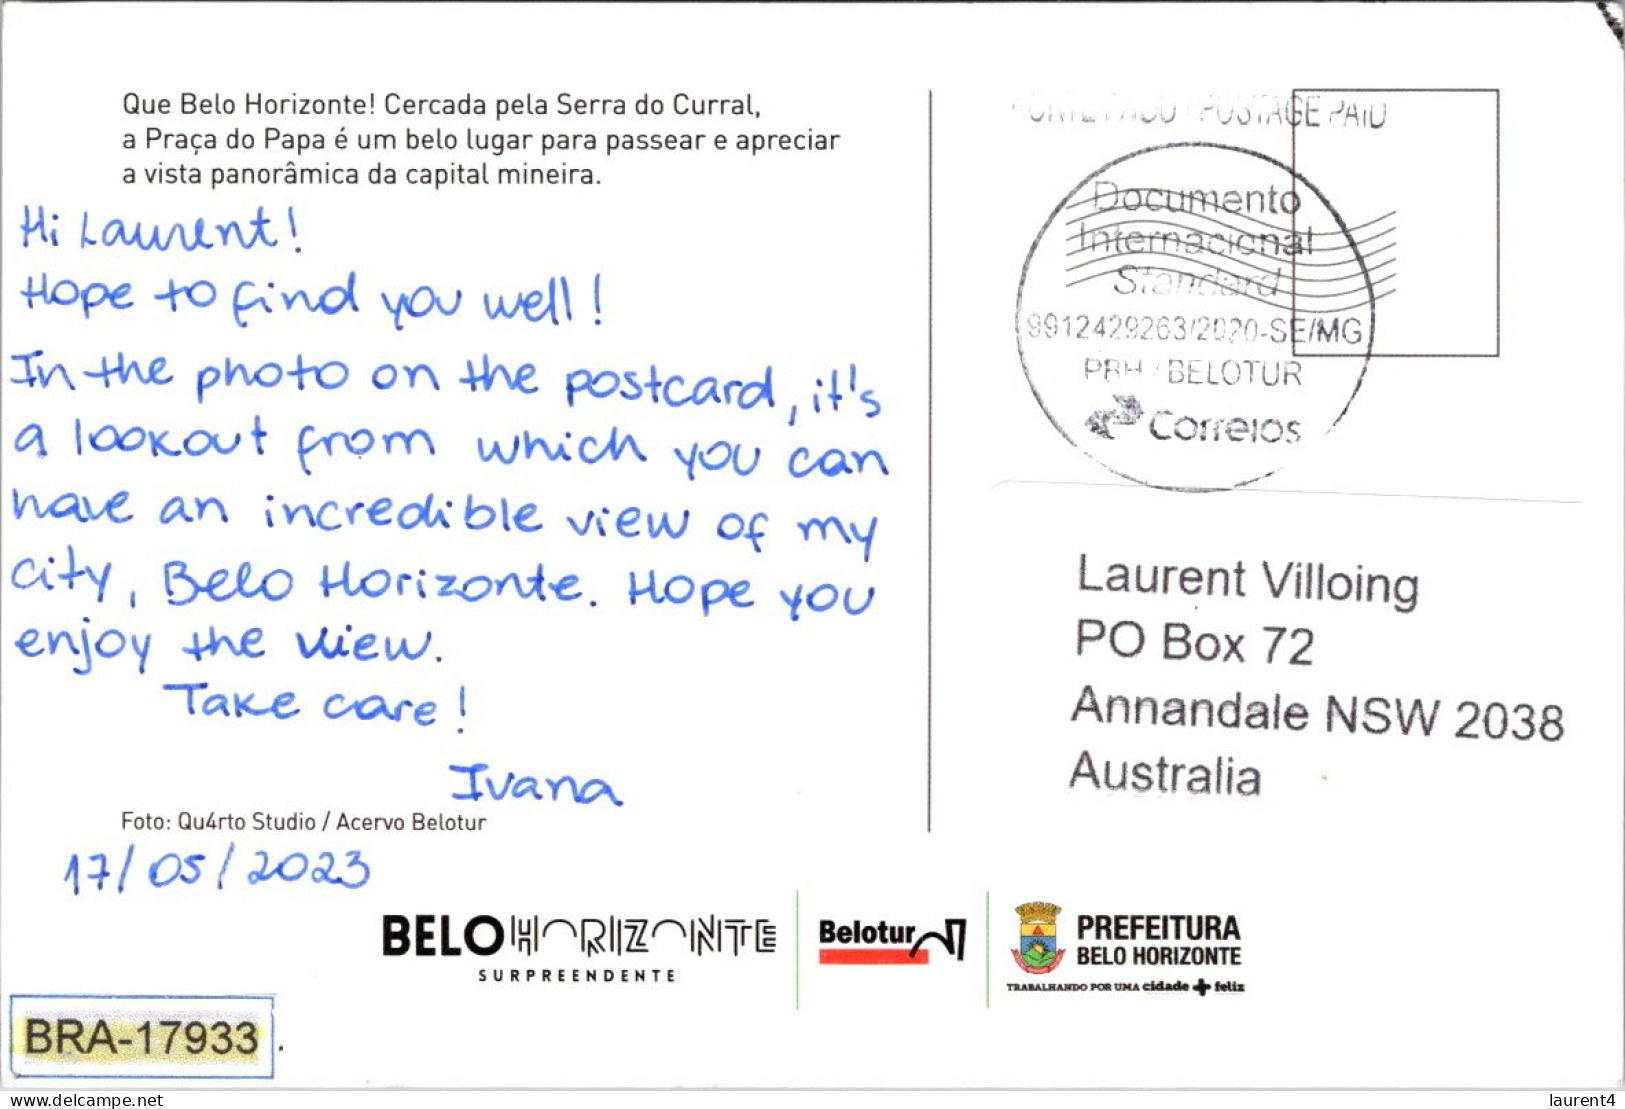 Que Belo Horizonte! Cercada pela Serra do Curral,
a Praça do Papa é um belo lugar para passear e apreciar
a vista panorâmica da capital mineira.
Hi Laurent!
Hope to find you well!
In the photo on the postcard, it's
a lookout from which you can
have an incredible view of my
city, Belo Horizonte. Hope you
enjoy the view.
Take care!
Ivana
Foto: Qu4rto Studio / Acervo Belotur
17/05/2023
POSTAGE PAID
Documento
Internacional
Standard
9912429263/2020-SE/MG
PBH / BELOTUR
Correios
Laurent Villoing
PO Box 72
Annandale NSW 2038
Australia
BELO HORIZONTE
SURPREENDENTE
Belotur
PREFEITURA
BELO HORIZONTE
TRABALHANDO POR UMA cidade + feliz
BRA-17933
www.delcampe.net
laurent4